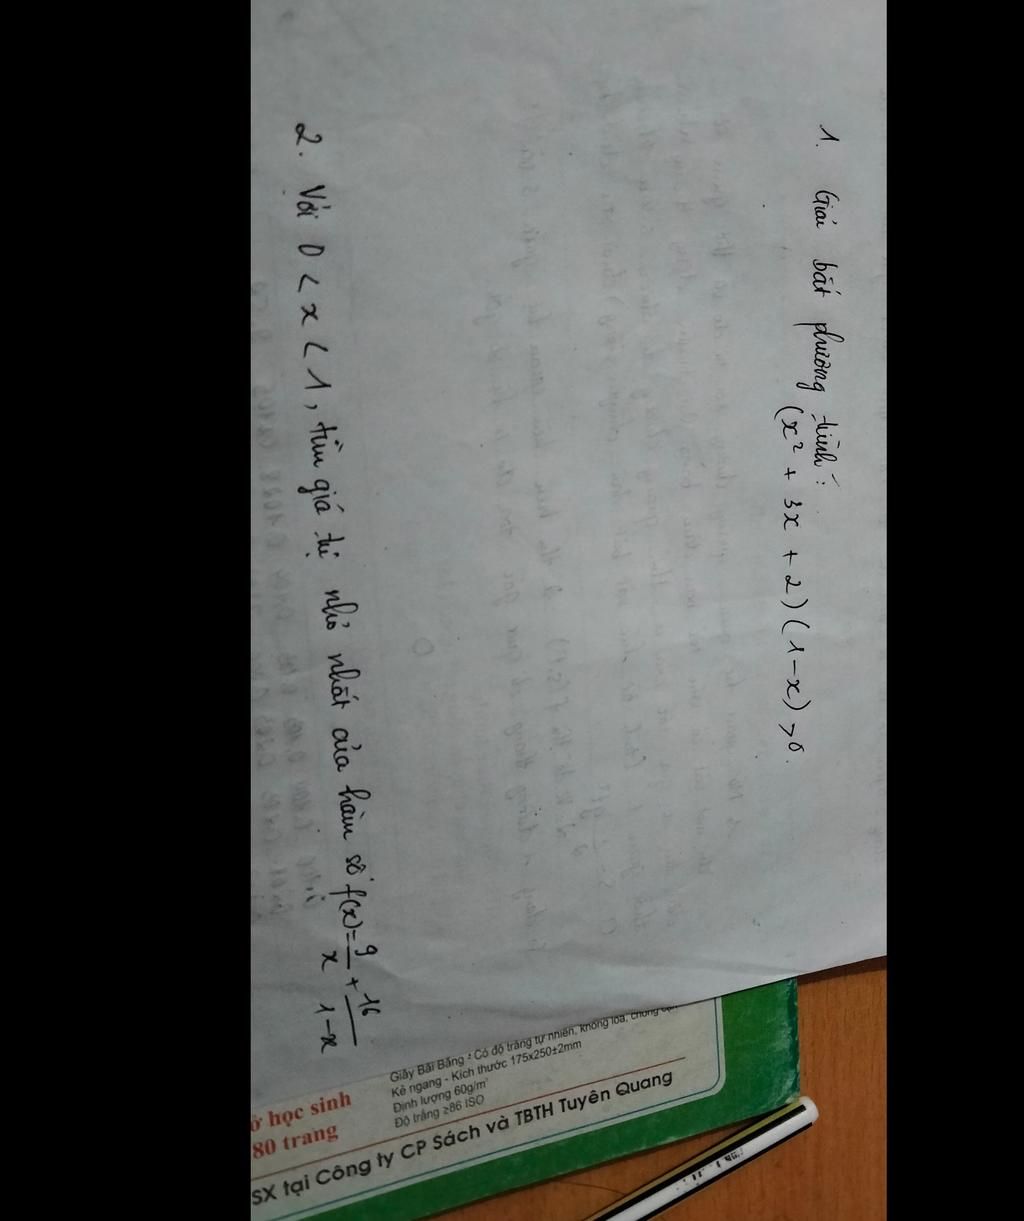 1. Giải bất phương trình:
(x² + 3x + 2)(1-x) > 0.
2. Với 0 < x < 1, tìm giá trị nhỏ nhất của hàm số f(x) = 9/x + 16/1-x
Giấy Bãi Bằng : Có độ trắng tự nhiên, không lóa, chống
Kẻ ngang - Kích thước 175x250±2mm
Định lượng 60g/m²
Độ trắng ≥86 ISO
học sinh
80 trang
SX tại Công ty CP Sách và TBTH Tuyên Quang